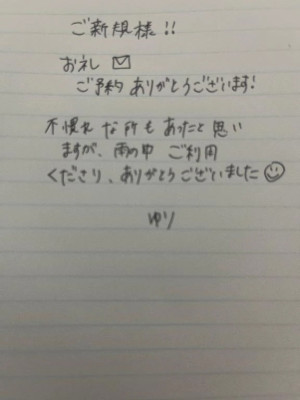 ご新規様!!
お礼 ✉
ご予約ありがとうございます!
不慣れな所もあったと思い
ますが、雨の中 ご利用
くださり、ありがとうございました☺
ゆり